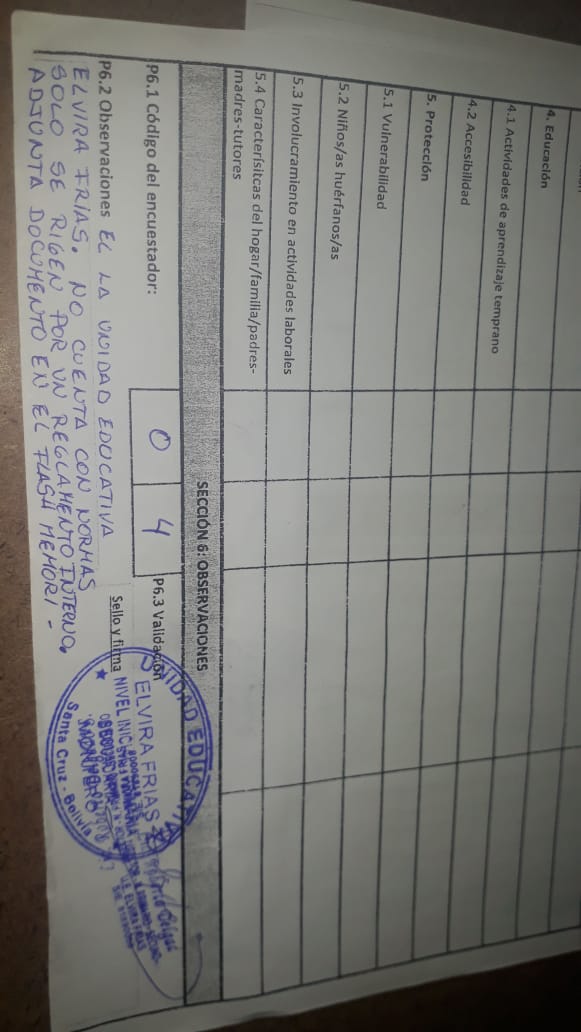 4. Educación
4.1 Actividades de aprendizaje temprano
4.2 Accesibilidad
5. Protección
5.1 Vulnerabilidad
5.2 Niños/as huérfanos/as
5.3 Involucramiento en actividades laborales
5.4 Caracterísitcas del hogar/familia/padres-
madres-tutores
SECCIÓN 6: OBSERVACIONES
P6.1 Código del encuestador:
0 4
P6.3 Validación
P6.2 Observaciones EL LA UNIDAD EDUCATIVA
ELVIRA FRIAS. NO CUENTA CON NORMAS
SOLO SE RIGEN POR UN REGLAMENTO INTERNO.
ADJUNTA DOCUMENTO EN EL FLASH MEMORI -
Sello y firma
UNIDAD EDUCATIVA
ELVIRA FRIAS
NIVEL
Santa Cruz - Bolivia